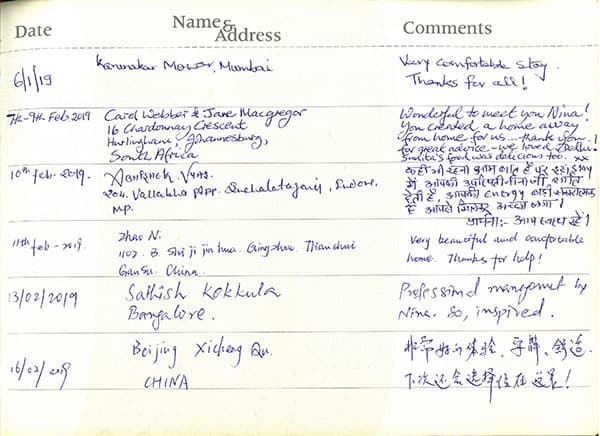 Date
Name & Address
Comments
6/1/19
Karunakar Mumbai
Very comfortable stay.
Thanks for all!
7th-9th Feb 2019
Carol Webber & Jane Macgregor
16 Chardonnay Crescent
Hurlingham, Johannesburg,
South Africa
Wonderful to meet you Nina!
You created a home away
from home for us... thank you
for great advice - we loved Delhi.
Sunita's food was delicious too. xx
10th feb - 2019.
Abhishek Vyas
204, Vallabha App. Indore,
MP.
कहीं भी रहना आम बात है पर
में आपकी
है, आपकी energy
है आपसे मिलकर अच्छा लगा।
आप स्वस्थ रहें।
11th feb - 2019
Zhao N.
1102. B. Shi ji jin hua. Qingzhou. Tianshui
Gansu. China.
Very beautiful and comfortable
home. Thanks for help!
13/02/2019
Sathish Kokkula
Bangalore.
Professional managment by
Nina. So, inspired.
16/02/2019
Beijing Xicheng Qu.
CHINA
非常好的体验，安静、舒适
下次还会选择住在这里！